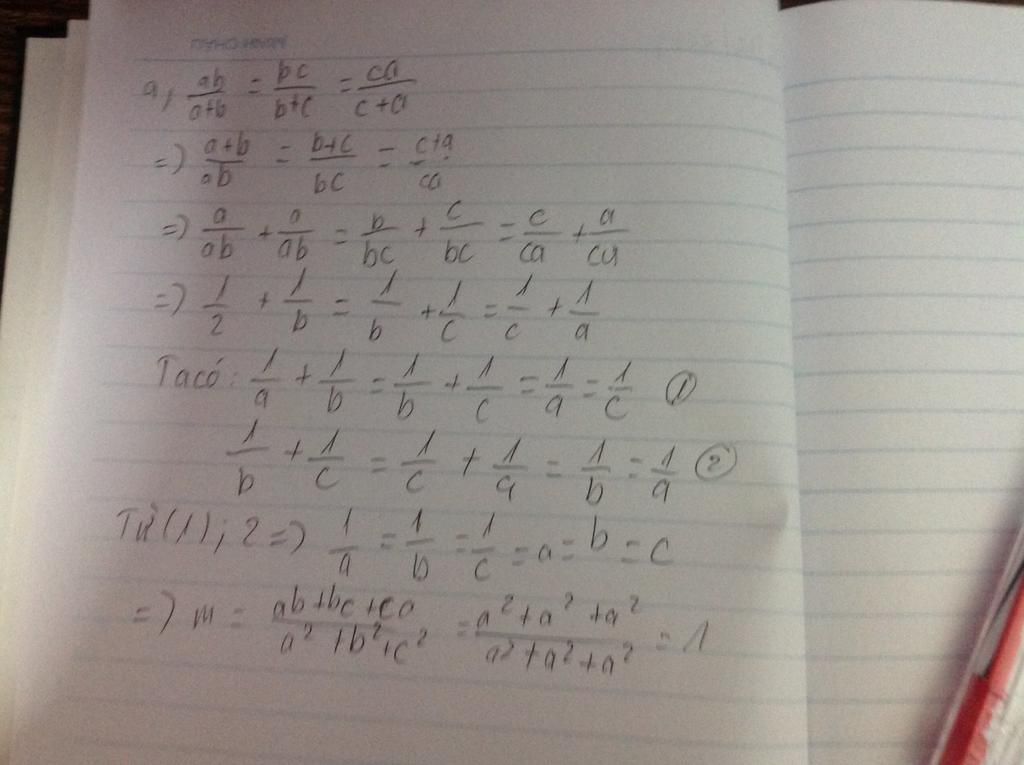 a, ab/a+b = bc/b+c = ca/c+a
=) a+b/ab = b+c/bc = c+a/ca
=) a/ab + a/ab = b/bc + c/bc = c/ca + a/ca
=) 1/2 + 1/b = 1/b + 1/c = 1/c + 1/a
Ta có: 1/a + 1/b = 1/b + 1/c = 1/a = 1/c ①
1/b + 1/c = 1/c + 1/a = 1/b = 1/a ②
Từ (1); 2 =) 1/a = 1/b = 1/c = a = b = c
=) m = ab+bc+ca/a²+b²+c² = a²+a²+a²/a²+a²+a² = 1